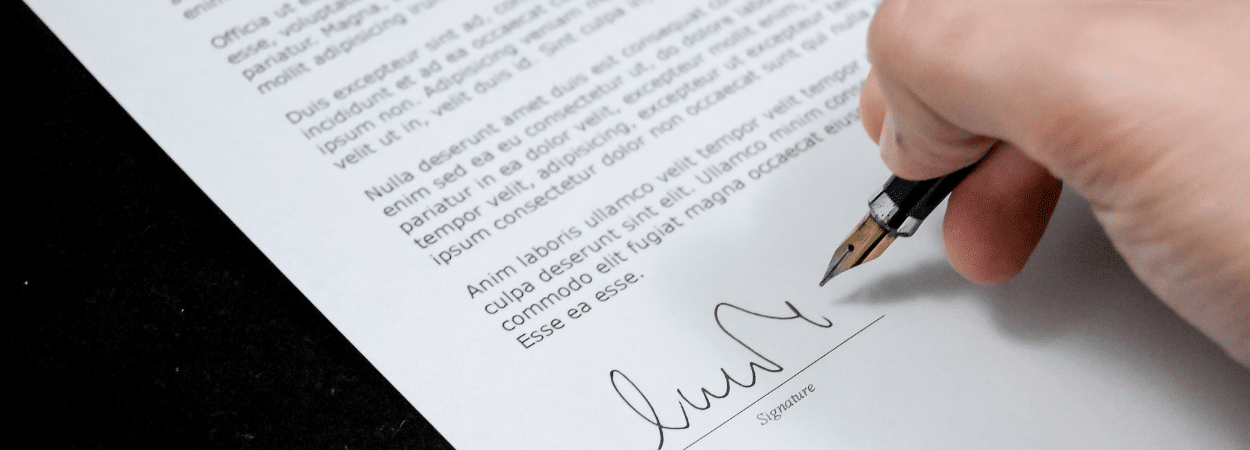 enim
Officia ut e
esse, voluptat
pariatur. Magna,
mollit adipisicing irur
Duis excepteur sint ad, con
incididunt et ad ea occaecat c
ipsum non. Adipisicing veniam m
velit ut in, velit duis id. Sint culpa in
Nulla deserunt amet duis est consequat
enim sed ea eu consectetur ut, do dolore
pariatur in ea dolor velit, excepteur mollit enim,
tempor velit, adipisicing, excepteur ut excepteur
ipsum consectetur dolor non occaecat sunt qui nulla
Anim laboris ullamco velit tempor velit tempor
culpa deserunt sint elit. Ullamco minim cons
commodo elit fugiat magna occaecat eius
Esse ea esse.
Signature